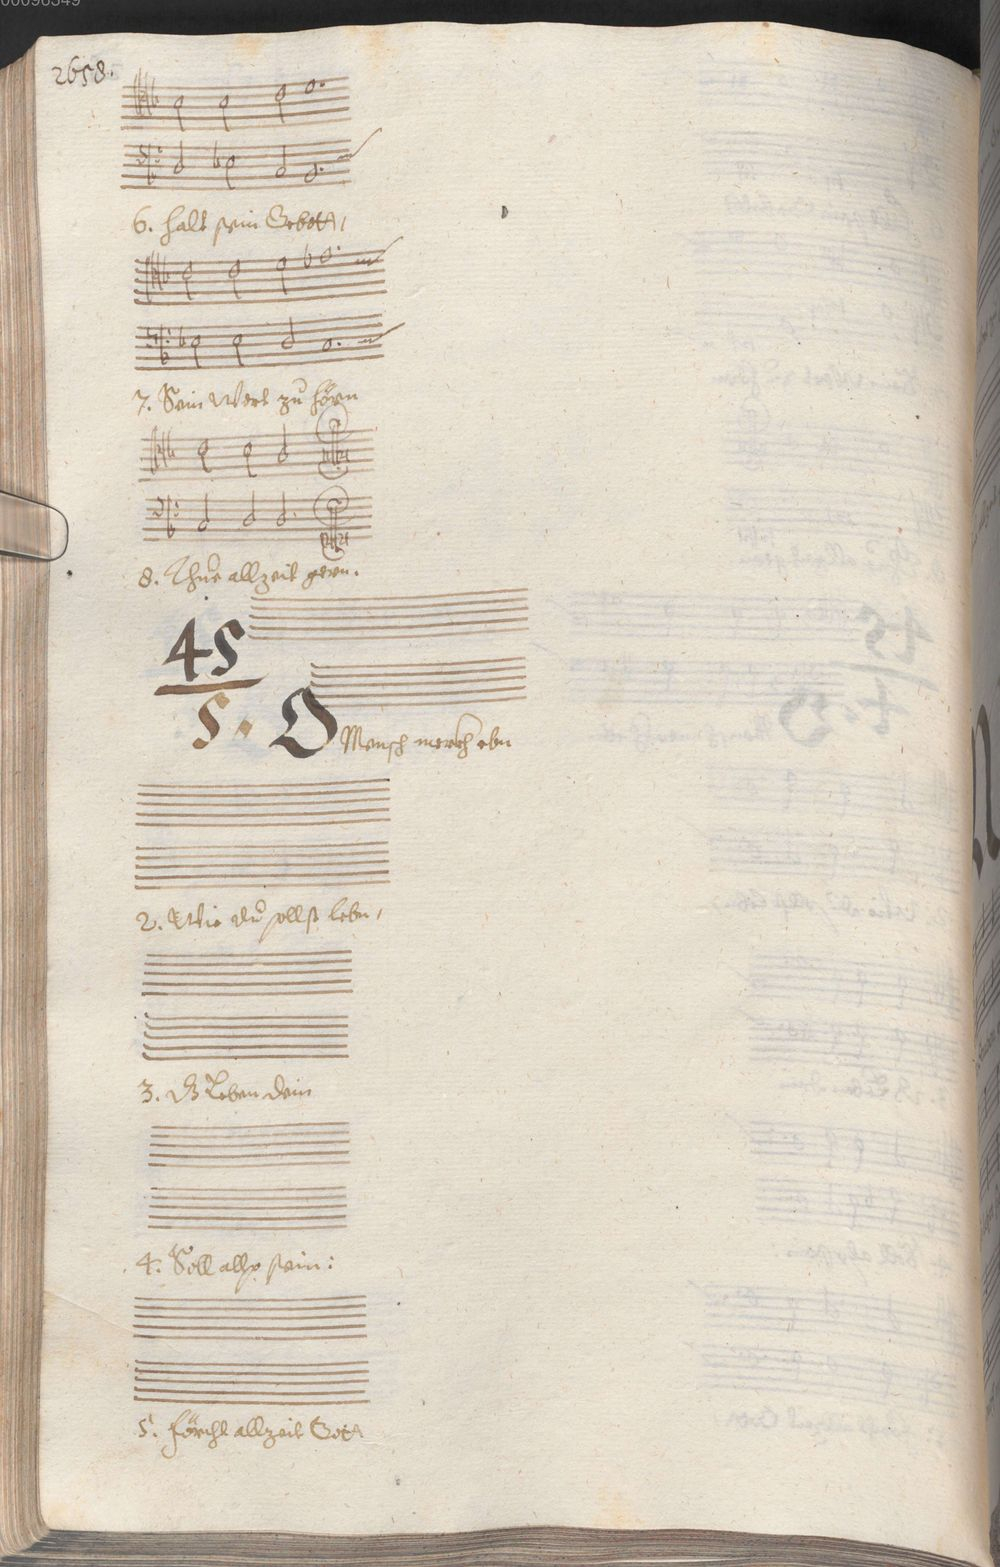 00096349
2658.
6. halt sein Gebott,
7. Sein Wort zu hörn
8. Thue allzeit gern.
45
5. O Mensch merckh ebn
2. Wie du sollst leben,
3. Dz Leben dein
4. Soll allso sein:
5. förcht allzeit Gott